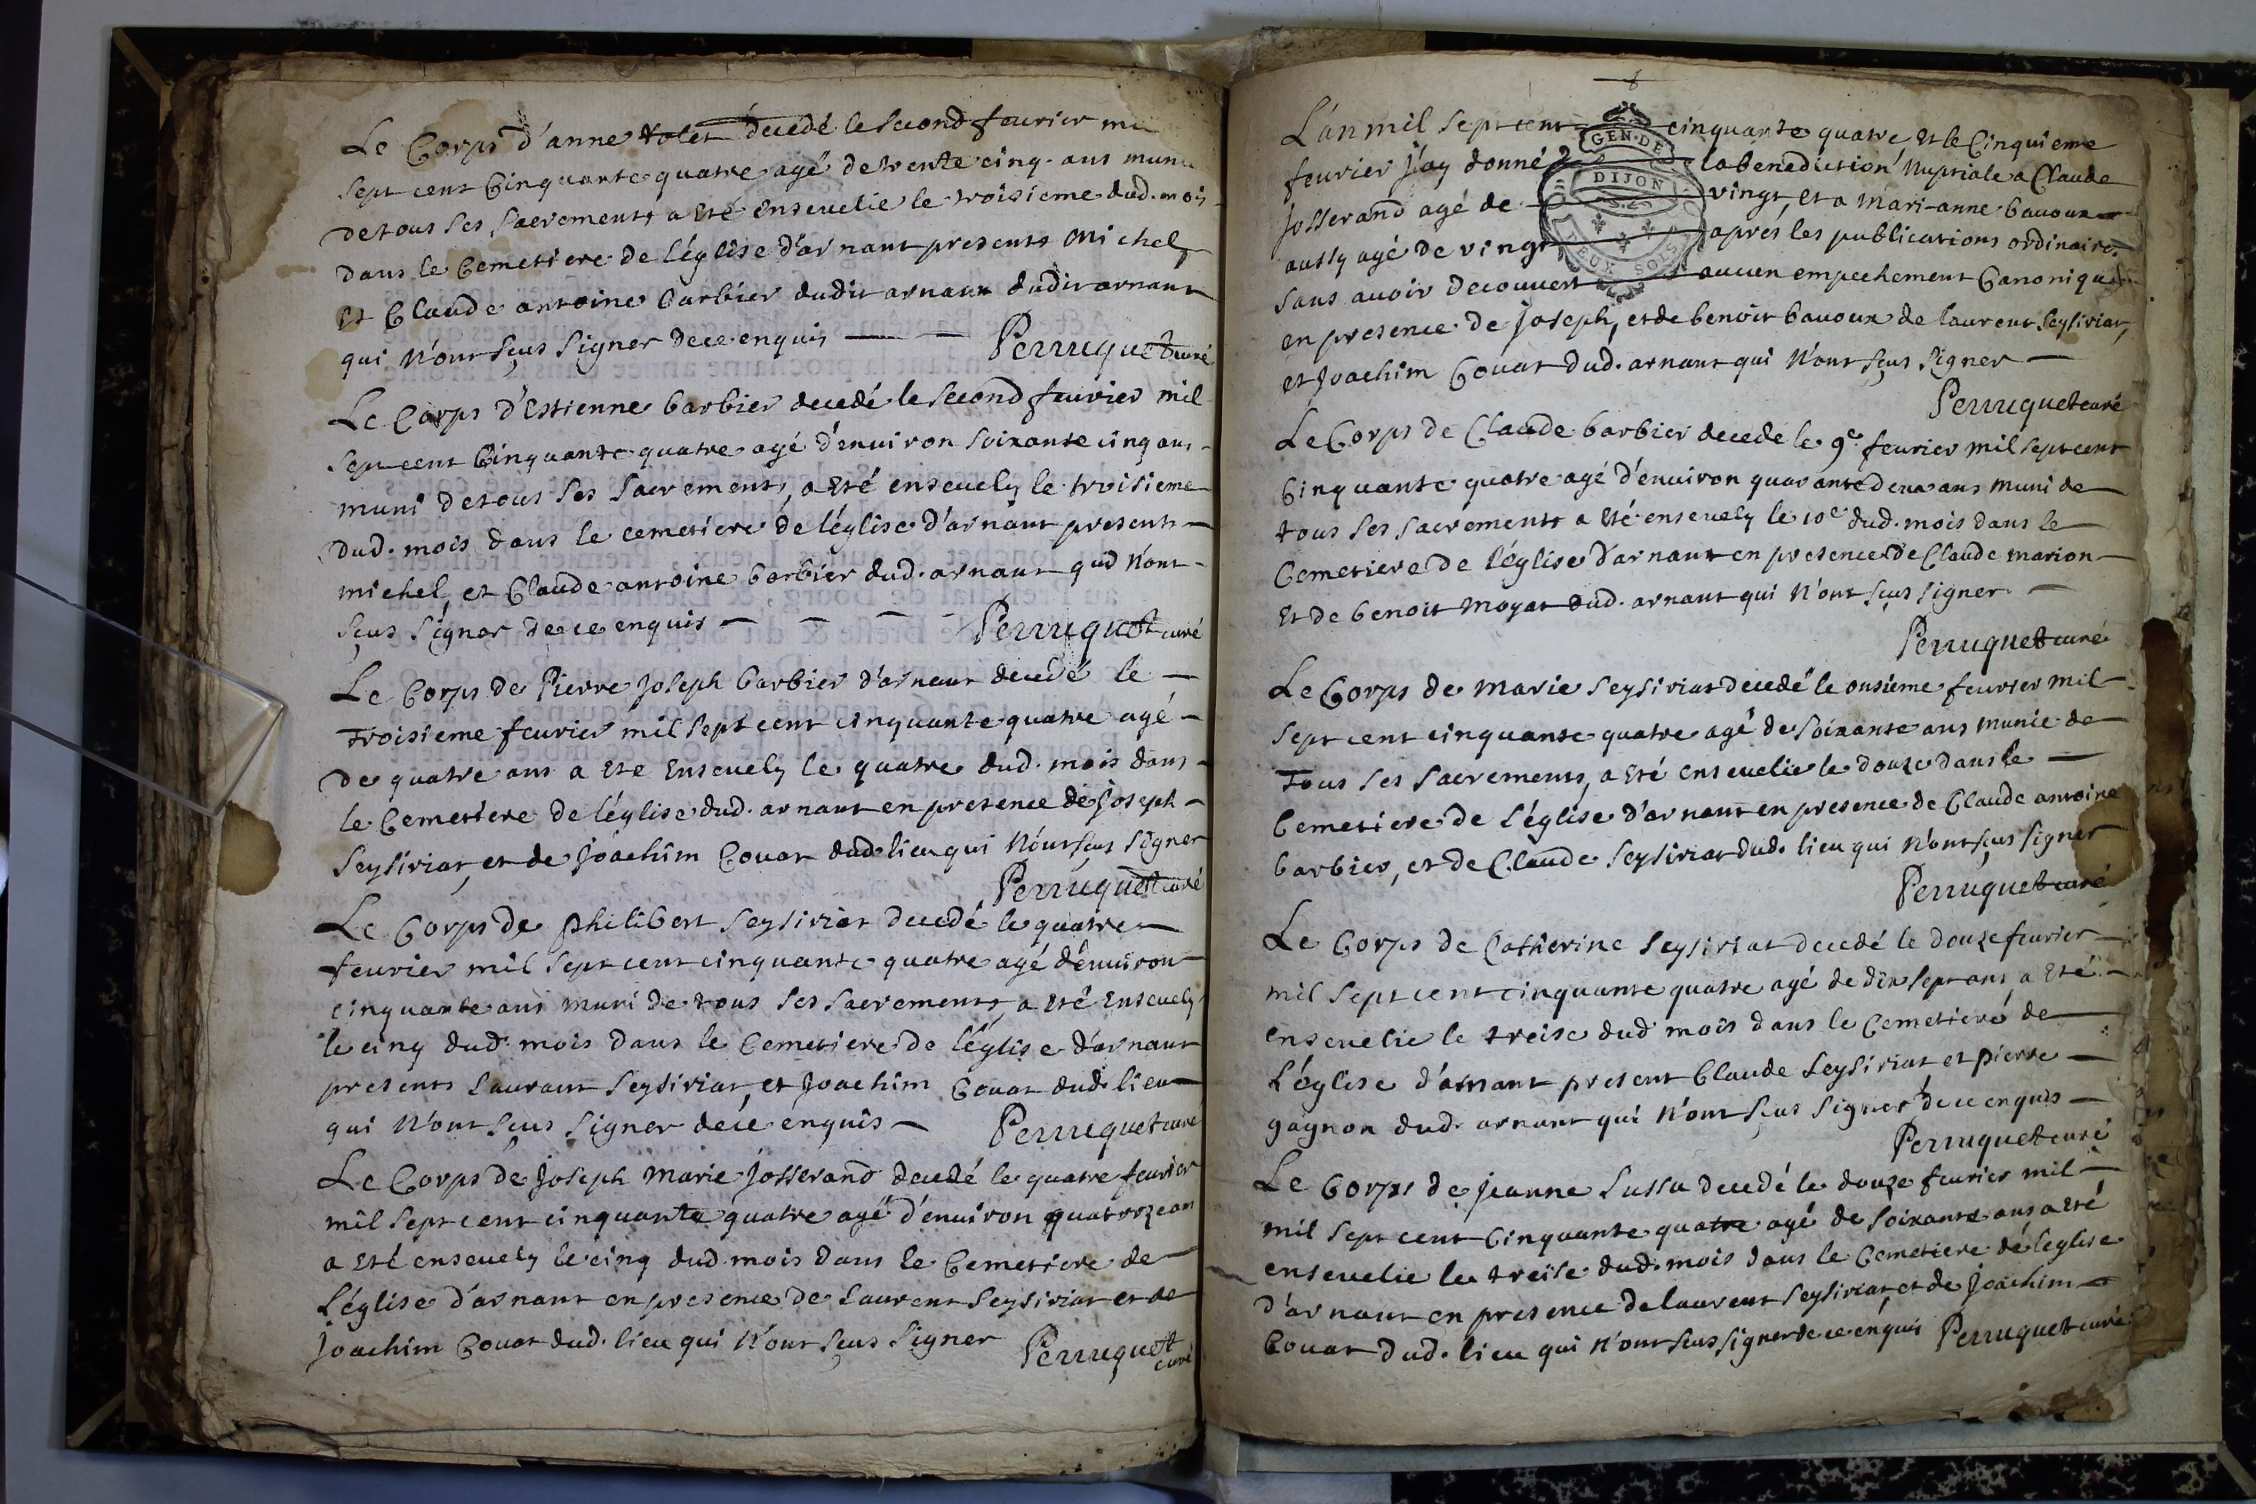 Le Corps d'anne volet decedé le second feurier mil
sept cent Cinquante quatre agé de trente cinq ans munie
de tous ses sacrements a eté enseuelie le troisieme dud. mois
dans le Cemetiere de l'église d'arnant presents Michel
et Claude antoine barbier dudit arnant dudit arnant
qui N'ont sçus signer de ce enquis — — Perruquet curé
Le Corps d'Estienne barbier decedé le second feurier mil
sept cent Cinquante quatre agé d'enuiron soixante cinq ans
muni de tous ses sacrements, a eté enseuely le troisieme
dud. mois dans le cemetiere de l'église d'arnant presents
michel, et Claude antoine barbier dud. arnant qui N'ont
sçus signer de ce enquis — — — — Perruquet curé
Le Corps de Pierre Joseph barbier d'arnant decedé le —
troisieme feurier mil sept cent cinquante quatre agé —
de quatre ans a eté enseuely le quatre dud. mois dans
le Cemetiere de l'église dud. arnant en presence de Joseph
Seysiriat, et de Joachim Couat dud. lieu qui N'ont sçus signer
Perruquet curé
Le Corps de philibert Seysiriat decedé le quatre —
feurier mil sept cent cinquante quatre agé d'enuiron
cinquante ans muni de tous ses sacrements, a eté Enseuely
le cinq dud. mois dans le Cemetiere de l'église d'arnant
presents Laurant Seysiriat, et Joachim Couat dud. lieu
qui N'ont sçus signer de ce enquis — Perruquet curé
Le Corps de Joseph Marie Josserand decedé le quatre feurier
mil sept cent cinquante quatre agé d'enuiron quatorze ans
a eté enseuely le cinq dud. mois dans le Cemetiere de
l'église d'arnant en presence de Laurent Seysiriat et de
Joachim Couat dud. lieu qui N'ont sçus signer Perruquet
curé
8
GEN. DE
DIJON
DEUX SOLS
L'an mil sept cent cinquante quatre, et le Cinquieme
feurier J'ay donné la benediction Nuptiale a Claude
Josserand agé de vingt, et a Mari-anne bauoux
aussy agé de vingt apres les publications ordinaires
sans auoir decouuert aucun empechement Canonique
en presence de Joseph, et de benoit bauoux de laurent Seysiriat,
et Joachim Couat dud. arnant qui N'ont sçus signer —
Perruquet curé
Le Corps de Claude barbier decedé le 9e. feurier mil sept cent
Cinquante quatre agé d'enuiron quarante deux ans muni de
tous ses sacrements a eté enseuely le 10e dud. mois dans le
Cemetiere de l'église d'arnant en presence de Claude marion
Et de benoit Moyat dud. arnant qui N'ont sçus signer —
Perruquet curé
Le Corps de Marie Seysiriat decedé le onsieme feurier mil
sept cent cinquante quatre agé de soixante ans munie de
Tous ses sacrements, a eté enseuelie le douze dans le —
Cemetiere de l'église d'arnant en presence de Claude antoine
barbier, et de Claude Seysiriat dud. lieu qui N'ont sçus signer
Perruquet curé
Le Corps de Catherine Seysiriat decedé le douze feurier
mil sept cent cinquante quatre agé de dix sept ans a eté
enseuelie le treise dud. mois dans le Cemetiere de
l'église d'arnant present Claude Seysiriat et pierre —
gagnon dud. arnant qui N'ont sçus signer de ce enquis —
Perruquet curé
Le Corps de Jeanne Lussu decedé le douze feurier mil
mil sept cent Cinquante quatre agé de soixante ans a eté
enseuelie le treise dud. mois dans le Cemetiere de l'eglise
d'arnant en presence de laurent Seysiriat et de Joachim
Couat dud. lieu qui N'ont sçus signer de ce enquis Perruquet curé